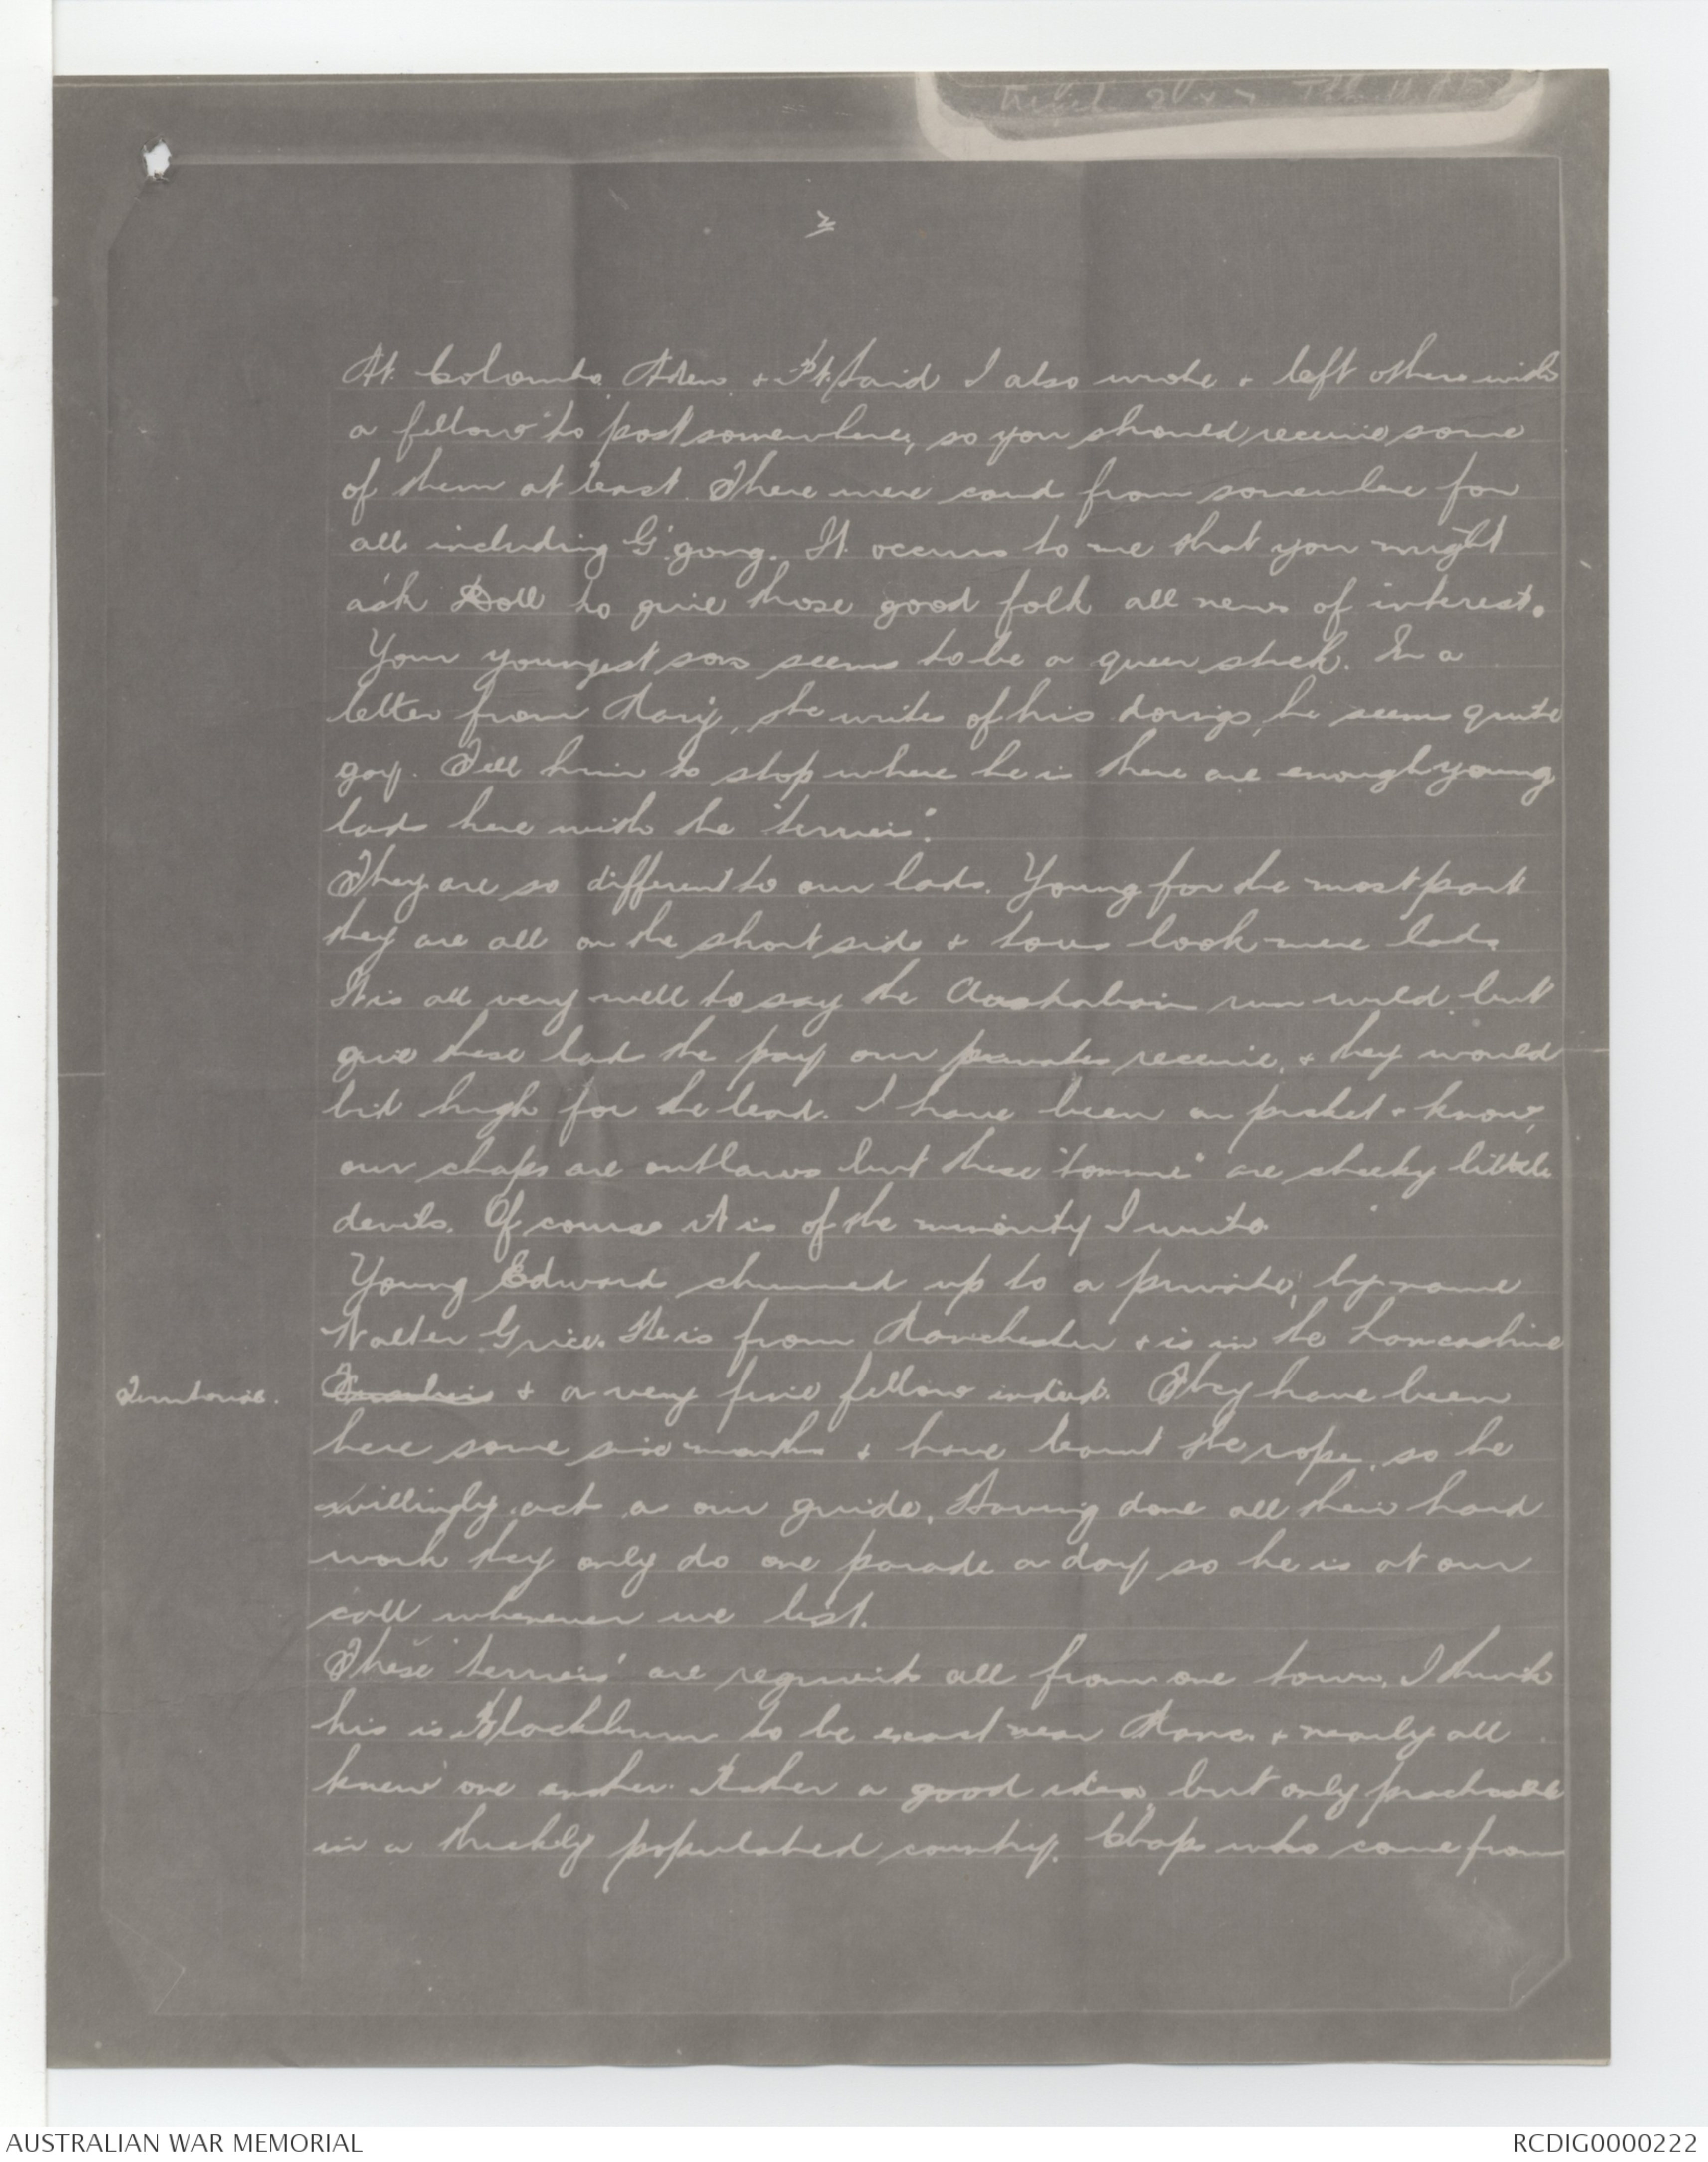 2
At Colombo, Aden & Pt. Said I also wrote & left others with
a fellow to post somewhere, so you should receive some
of them at least. There were card from somewhere for
all including G'gong. It occurs to me that you might
ask Doll to give those good folk all news of interest.
Your youngest son seems to be a queer stick. In a
letter from Mary, she writes of his doings, he seems quite
gay. Tell him to stop where he is there are enough young
lads here with the "terriers".
They are so different to our lads. Young for the most part
they are all on the short side & look mere lads
It is all very well to say the Australian run wild but
give these lads the pay our privates receive, & they would
bid high for the lead. I have been on picket & know,
our chaps are outlaws but these "tommie" are cheeky little
devils. Of course it is of the minority I write.
Young Edward chummed up to a private, by name
Walter Grice. He is from Manchester & is in the Lancashire
Territorials. & a very fine fellow indeed. They have been
here some six months & have learnt the rope, so he
willingly act as our guide. Having done all their hard
work they only do one parade a day so he is at our
call whenever we list.
These "terriers" are regiments all from one town, I think
his is Blackburn to be exact near Manc. & nearly all
knew one another. Rather a good idea, but only practicable
in a thickly populated country. Chaps who come from
AUSTRALIAN WAR MEMORIAL
RCDIG0000222